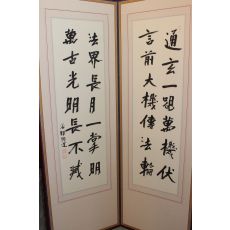 通玄一路萬機伏
言前大機傳法輪
法界長月一掌明
萬古光明長不滅